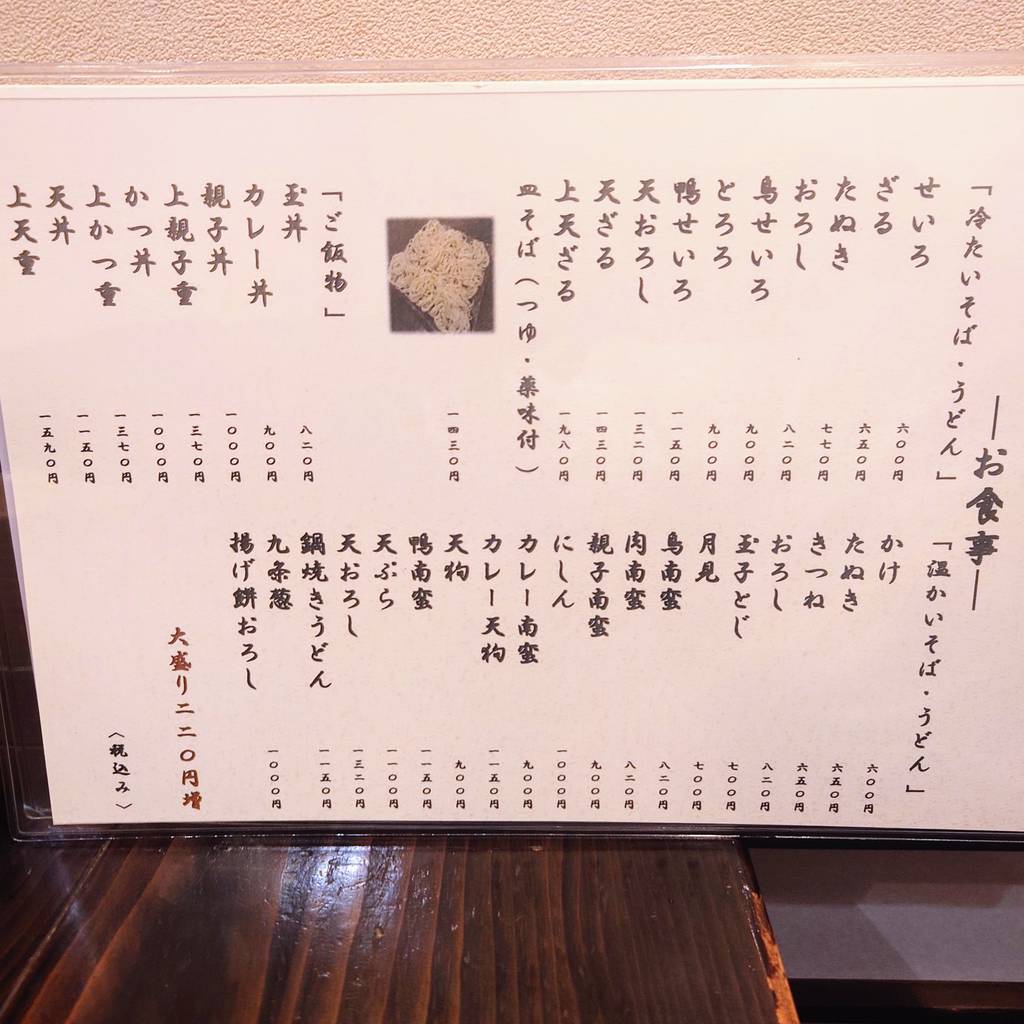 お食事
「冷たいそば・うどん」
せいろ 六〇〇円
ざる 六五〇円
たぬき 七七〇円
おろし 八二〇円
鳥せいろ 九〇〇円
とろろ 九〇〇円
鴨せいろ 一一五〇円
天おろし 一三二〇円
天ざる 一四三〇円
上天ざる 一九八〇円
皿そば（つゆ・薬味付）
一四三〇円
「ご飯物」
玉丼 八二〇円
カレー丼 九〇〇円
親子丼 一〇〇〇円
上親子重 一三七〇円
かつ丼 一〇〇〇円
上かつ重 一三七〇円
天丼 一一五〇円
上天重 一五九〇円
「温かいそば・うどん」
かけ 六〇〇円
たぬき 六五〇円
きつね 六五〇円
おろし 八二〇円
玉子とじ 七〇〇円
月見 七〇〇円
鳥南蛮 八二〇円
肉南蛮 八二〇円
親子南蛮 九〇〇円
にしん 一〇〇〇円
カレー南蛮 九〇〇円
カレー天狗 一一五〇円
天狗 九〇〇円
鴨南蛮 一一五〇円
天ぷら 一一〇〇円
天おろし 一三二〇円
鍋焼きうどん 一一五〇円
九条葱
揚げ餅おろし 一〇〇〇円
大盛り二二〇円増
〈税込み〉